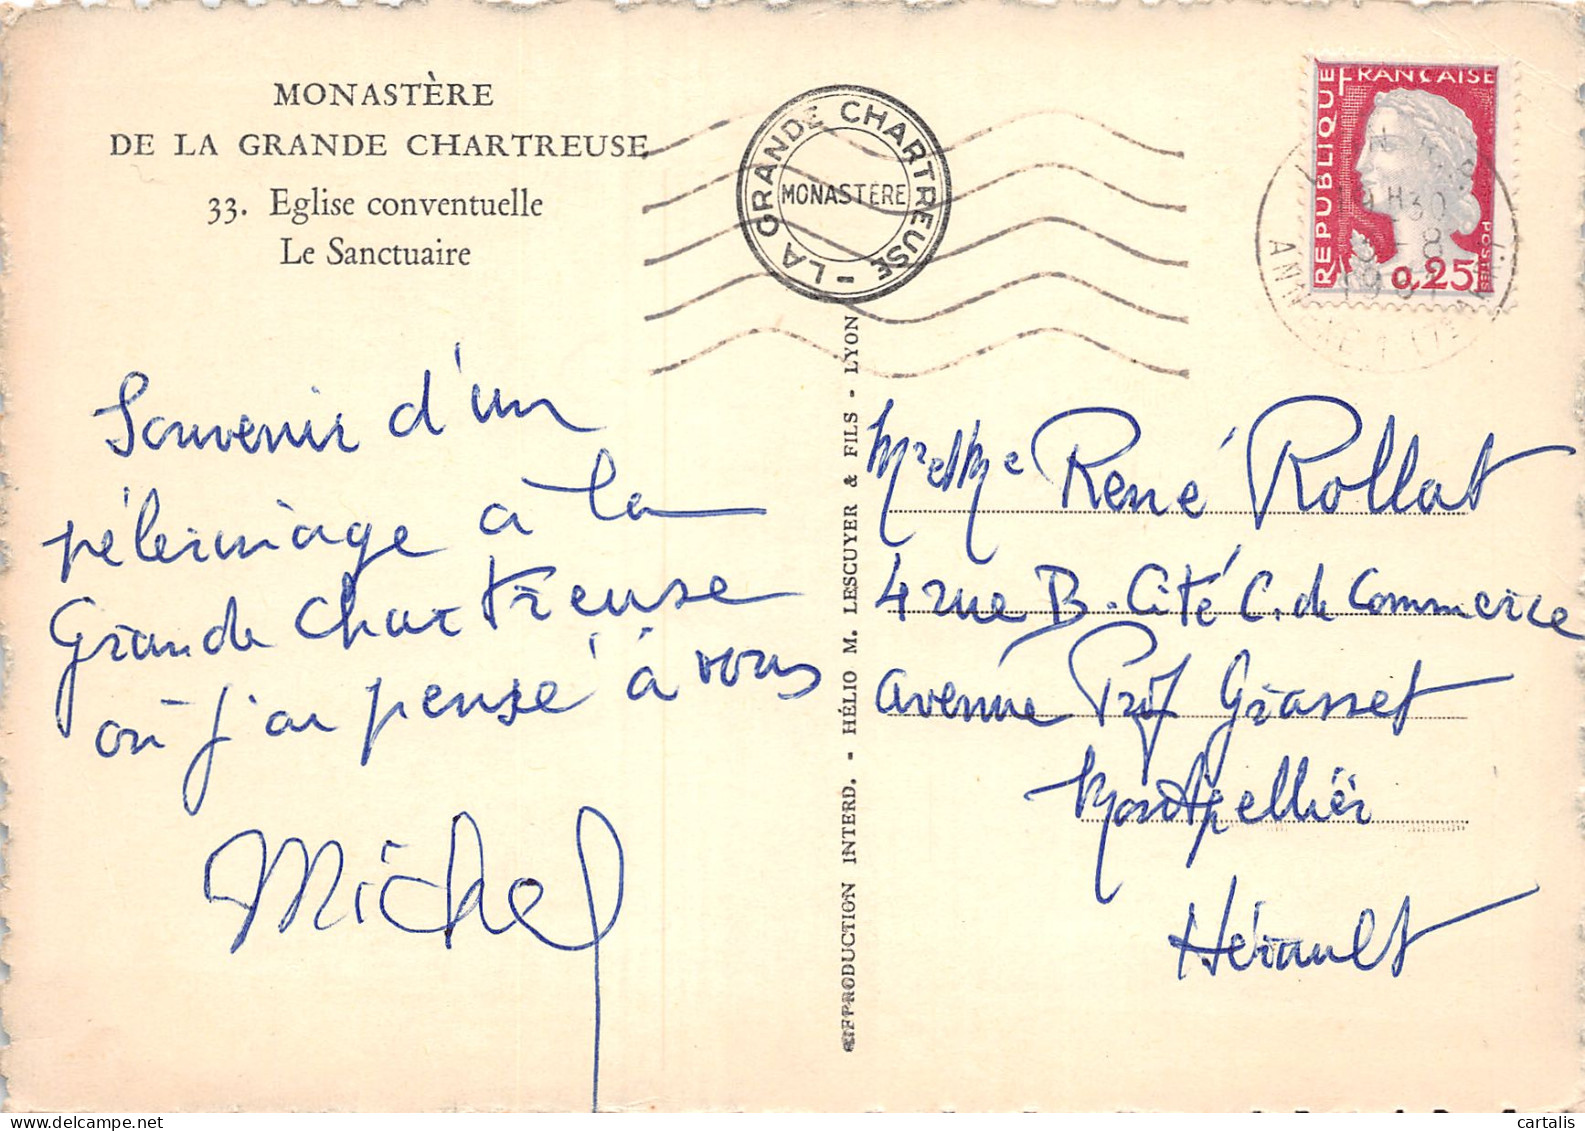 MONASTÈRE
DE LA GRANDE CHARTREUSE
33. Eglise conventuelle
Le Sanctuaire
LA GRANDE CHARTREUSE -
MONASTÈRE
RÉPUBLIQUE FRANÇAISE
POSTES
0,25
19H30
Souvenir d'un
pèlerinage à la
Grande Chartreuse
où j'ai pensé à vous
Michel
REPRODUCTION INTERD. - HÉLIO M. LESCUYER & FILS - LYON
Mr et Mme René Rollat
4 rue B. Cité C. de Commerce
avenue Prof Grasset
Montpellier
Hérault
cartalis